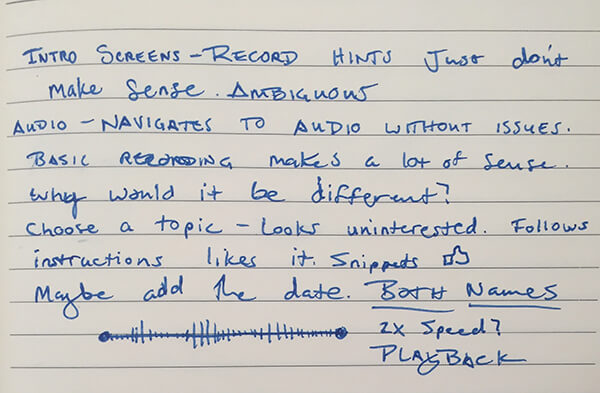 INTRO SCREENS - RECORD HINTS Just don't
make sense. AMBIGUOUS
AUDIO - NAVIGATES TO AUDIO WITHOUT ISSUES.
BASIC RECORDING makes a lot of sense.
why would it be different?
Choose a topic - Looks uninterested. Follows
instructions likes it. Snippets
Maybe add the date. BOTH NAMES
2x Speed?
PLAYBACK